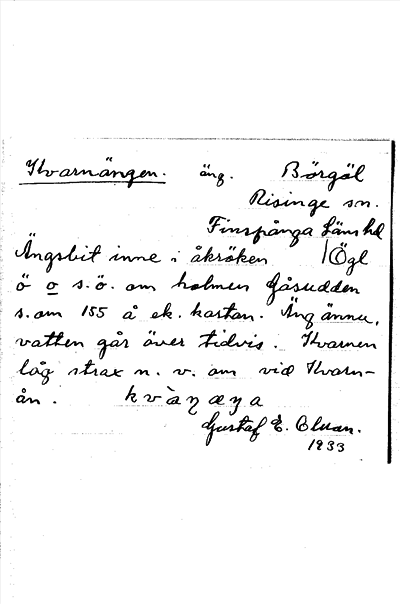 Kvarnängen. äng. Börgöl
Risinge sn.
Finspånga Läns hd
Ängsbit inne i åkröken Ögl
ö o s.ö. om holmen Gåsudden
s. om 155 å ek. kartan. Äng ännu,
vatten går över tidvis. Kvarnen
låg strax n. v. om vid Kvarn-
ån.
Gustaf E.
1933